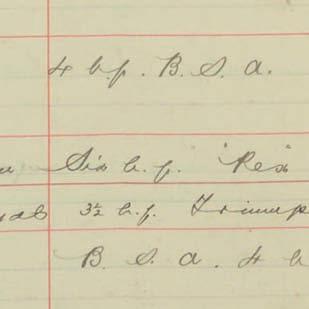 4 h.p. B. S. A.
Six h.p. "Rex
3½ h.p. Triump
B. S. A. 4 h